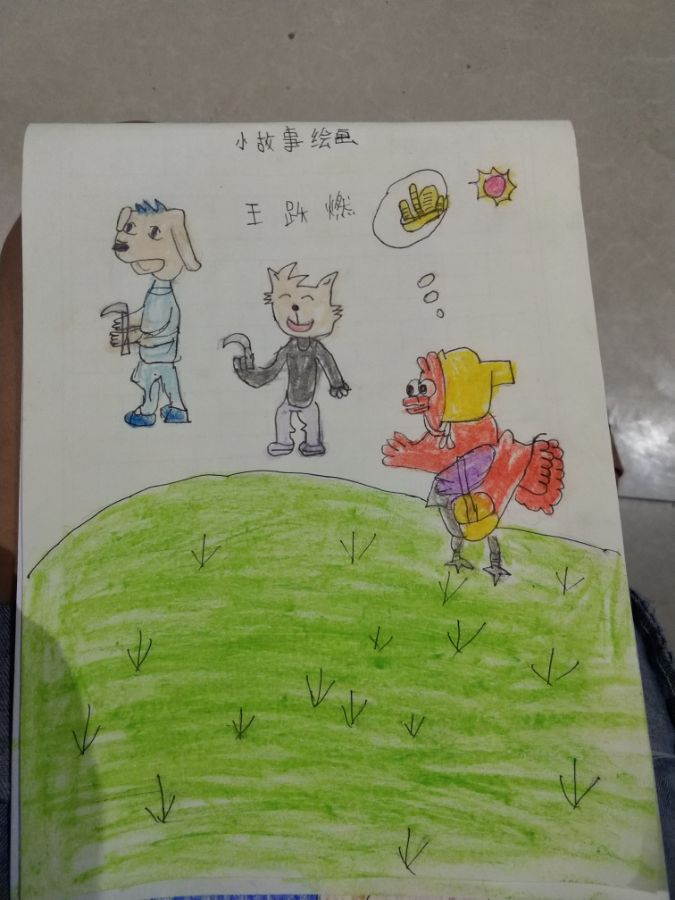 小故事绘画
王跃燃